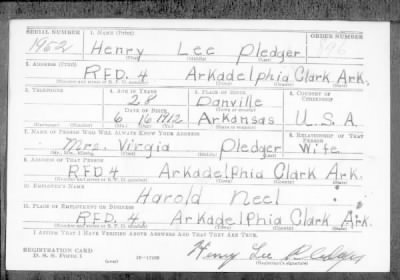 SERIAL NUMBER 1. NAME (Print) ORDER NUMBER
1952 Henry Lee Pledger 896
(First) (Middle) (Last)
2. ADDRESS (Print)
RFD. 4 Arkadelphia Clark Ark.
3. TELEPHONE 4. AGE IN YEARS 5. PLACE OF BIRTH 6. COUNTRY OF CITIZENSHIP
28 Danville
DATE OF BIRTH
6 16 1912 Arkansas U.S.A
(Mo.) (Day) (Yr.)
7. NAME OF PERSON WHO WILL ALWAYS KNOW YOUR ADDRESS 8. RELATIONSHIP OF THAT PERSON
Mrs. Virgia Pledger Wife
(Mr., Mrs., Miss) (First) (Middle) (Last)
9. ADDRESS OF THAT PERSON
RFD4 Arkadelphia Clark Ark.
10. EMPLOYER'S NAME
Harold Neel
11. PLACE OF EMPLOYMENT OR BUSINESS
RFD. 4 Arkadelphia Clark Ark.
I AFFIRM THAT I HAVE VERIFIED ABOVE ANSWERS AND THAT THEY ARE TRUE.
REGISTRATION CARD
D. S. S. Form 1 (over) Henry Lee Pledger
(Registrant's signature)